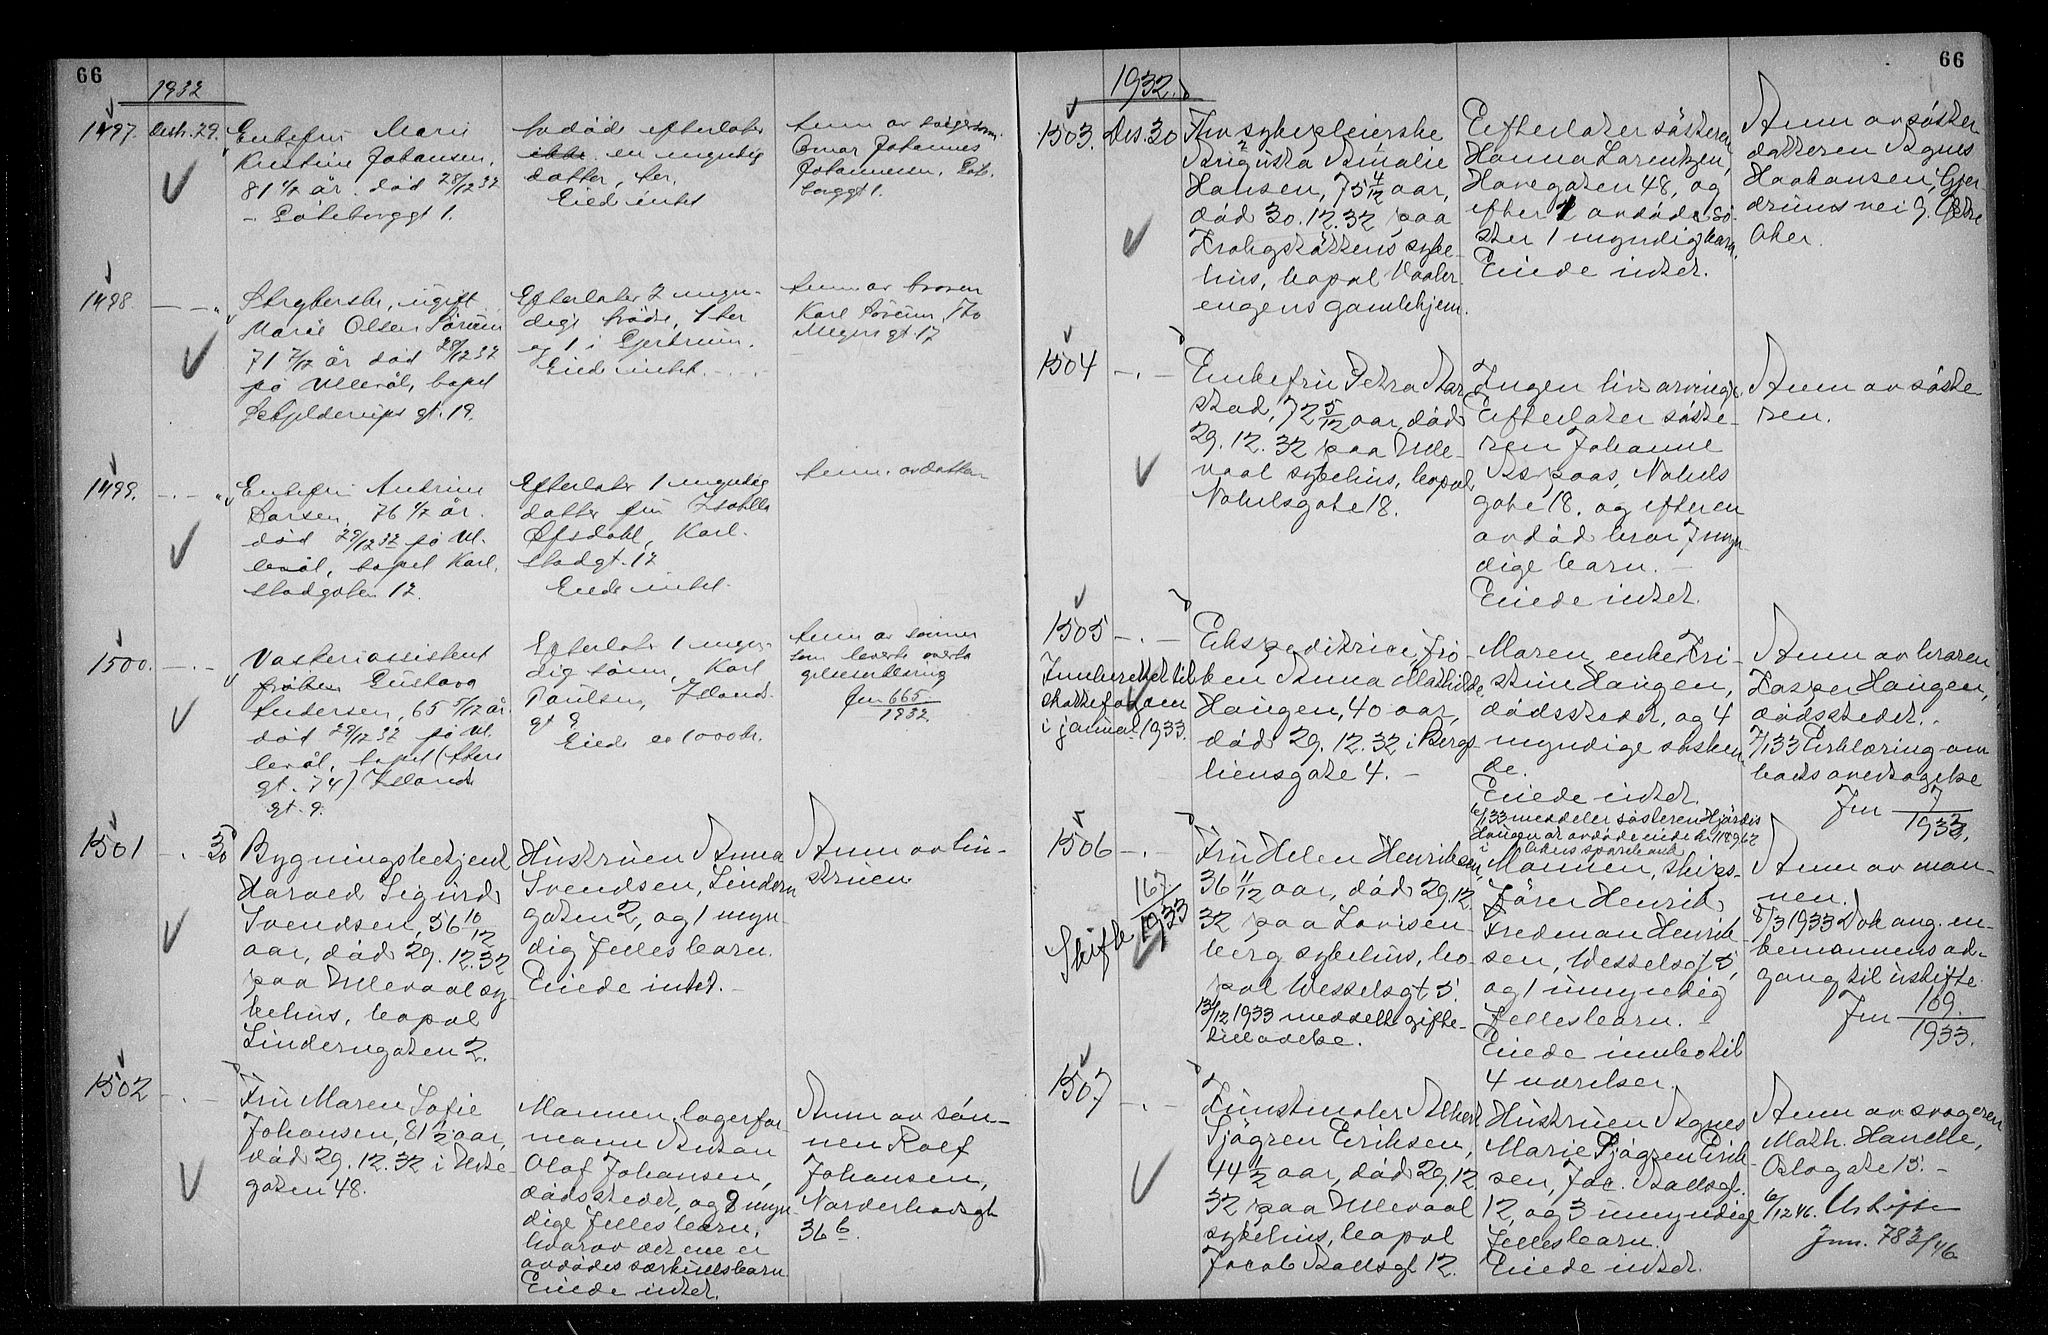 66
1932
1497. Desbr. 29. Enkefru Marie
Kristine Johansen,
81 1/2 år. død 28/12 32
- Göteborggt 1.
Avdøde efterlater
en myndig
datter, her.
Eied intet
Anm av svigersøn
Johannes
Johannesen, Göte
borggt 1.
1498 -"- Strykerske, ugift
Marie Olsen Sørum
71 7/12 år død 28/12 32
på Ullevål, bopel
Schjelderups gt. 19.
Efterlater 2 myn-
dige brødre, 1 her
og 1 i Gjerdrum.
Eied intet.
Anm av broren
Karl Sørum, Th
Meyers gt. 17
1499. -.- " Enkefru Andrine
Larsen, 76 1/2 år.
død 29/12 32 på Ul.
levål, bopel Karl.
stadgaten 12.
Efterlater 1 myndig
datter fru Isabella
Ofsdahl, Karl.
stadgt. 12
Eiede intet.
Anm. av datter
1500. -.- Vaskeriassistent
frøken Gustava
Andersen, 65 5/12 år.
død 29/12 32 på Ul.
levål, bopel (
gt. 74) Iilands
gt. 9.
Efterlater 1 myn-
dig sønn, Karl
Paulsen, Iilands
gt 9
Eied ca 1000 kr.
Anm av sønnen
som leverte overta
gelseserklæring
Jnr 665/1932
1501 -.- 30 Bygningsbetjent
Harald Sigurd
Svendsen, 56 10/12
aar, død 29.12.32
paa Ullevaal sy-
kehus, bopal
Linderngaten 2.
Hustruen Anna
Svendsen, Lindern
gaten 2, og 1 myn-
dig fellesbarn.
Eiede intet. -
Anm av hu-
struen
1502 -.- Fru Maren Sofie
Johansen, 81 1/2 aar,
død 29.12.32 i Uste
gaten 48.
Mannen, lagerfor
mann Anton
Olaf Johansen,
dødsstedet, og 8 myn
dige fellesbarn,
hvorav det ene er
avdødes særkulsbarn
Eiede intet.
Anm av søn-
nen Rolf
Johansen,
Norderhovsgt
36 b.
66
1932.
1503. Des. 30 Frv sykepleierske
Augusta Amalie
Hansen, 75 4/12 aar,
død 30.12.32 paa
Krohgstøttens syke
hus, bopal Vaaler
engens gamlehjem.
Efterlater søsteren
Hanna Larentzen,
Havegaten 48, og
efter 1 avdød sø-
ster 1 myndig barn.
Eiede intet.
Anm av søster
datteren Agnes
Haakansen, Gjer
drums vei 9. Østre
Aker.
1504 -.- Enkefru Petra Aar
stad, 72 5/12 aar, død
29.12.32 paa Ulle-
vaal sykehus, bopal
Nobelsgate 18.
Ingen livsarvinge
Efterlater søste-
ren Johanne
Aspaas, Nobels
gate 18, og efter en
avdød bror 7 myn
dige barn. -
Eiede intet.
Anm av søste
ren.
1505 -.- Ekspeditrice, frø-
ken Anna Mathilde
Haugen, 40 aar,
død 29.12.32 i Bergs
liensgate 4. -
Innberettet til
skattefogden
i januar 1933.
Moren, enke Kri-
stine Haugen,
dødsstedet, og 4
myndige søsken
de.
Eiede intet.
6/1 33 meddeler søsteren Hjørdis
Haugen at avdøde eiede kr 1189,62
i Akers sparebank
Anm av broren
Kasper Haugen,
dødsstedet.
7/1 33 Erklæring om
boets overtagelse
Jnr 7/1933,
1506 -.- Fru Helen Henriksen,
36 11/12 aar, død 29.12.
32 paa Lovisen-
berg sykehus, bo-
pal Wesselsgt 5.
13/12 1933 meddelt gifte-
tillatelse.
Skifte 167/1933
Mannen, skips-
fører Henrik
Fredman Henrik-
sen, Wesselsgt 5,
og 1 umyndig
fellesbarn. -
Eiede innbo til
4 værelser.
Anm av man-
nen.
8/3 1933 Dok ang. en-
kemannens ad-
gang til uskifte
Jnr 169/1933.
1507 -.- Kunstmaler Albert
Sjögren Eriksen,
44 1/2 aar, død 29.12.
32 paa Ullevaal
sykehus, bopal
Jacob Aallsgt 12.
Hustruen Agnes
Marie Sjögren Erik-
sen, Jac. Aallsgt.
12, og 3 umyndige
fellesbarn.
Eiede intet.
Anm av svogeren
Math. Handle,
Oslogate 15. -
6/12 46. Uskifte
Jnr. 783/46